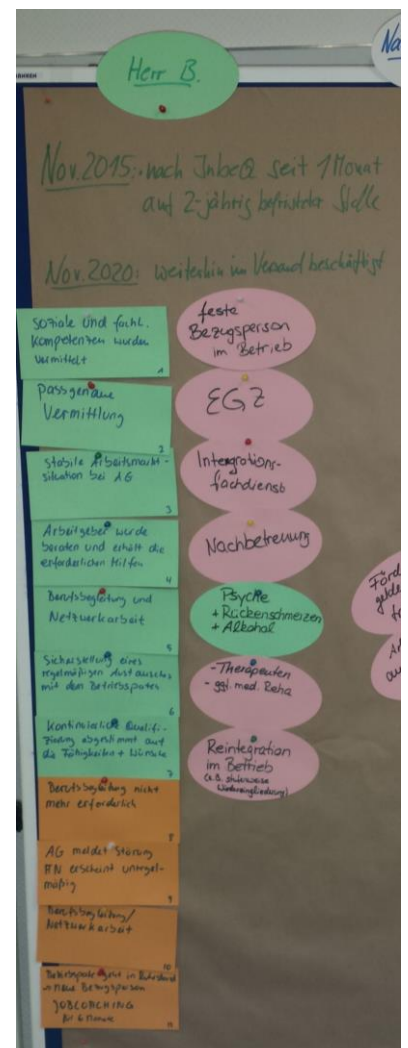 Herr B.
Na
Nov. 2015: nach InbeQ seit 1 Monat
auf 2-jährig befristeter Stelle
Nov. 2020: weiterhin im Versand beschäftigt
soziale und fachl.
Kompetenzen wurden
vermittelt
1
passgenaue
Vermittlung
2
stabile Arbeitsmarkt-
situation bei AG
3
Arbeitgeber wurde
beraten und erhält die
erforderlichen Hilfen
4
Berufsbegleitung und
Netzwerkarbeit
5
Sicherstellung eines
regelmäßigen Austausches
mit dem Betriebspaten
6
Kontinuierliche Qualifi-
zierung abgestimmt auf
die Fähigkeiten + Wünsche
7
Berufsbegleitung nicht
mehr erforderlich
8
AG meldet Störung
AN erscheint unregel-
mäßig
9
Berufsbegleitung/
Netzwerkarbeit
10
Betriebspate geht in Ruhestand
→ neue Bezugsperson
JOBCOACHING
für 6 Monate
11
feste
Bezugsperson
im Betrieb
EGZ
Integrations-
fachdienst
Nachbetreuung
Psyche
+ Rückenschmerzen
+ Alkohol
- Therapeuten
- ggf. med. Reha
Reintegration
im Betrieb
(z.B. stufenweise
Wiedereingliederung)
Förd
gelde